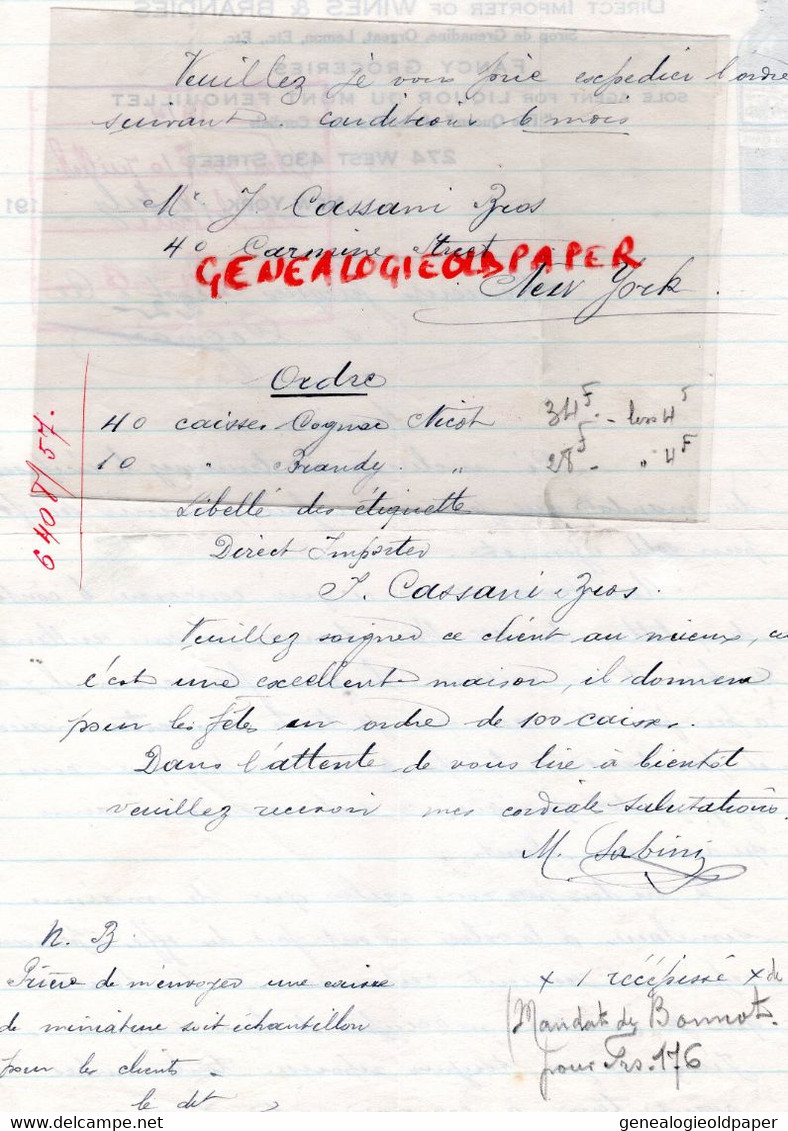 Veuillez je vous prie expedier l'ordre
suivant conditions 6 mois
Mr. J. Cassani Bros
40 Carmine Street
New York.
GENEALOGIEOLDPAPER
Ordre
40 caisses Cognac Nicot 34F. - less 4F
10 " Brandy. " 28F - " 4F
6408/57.
Libellé des étiquette
Direct Importer
J. Cassani Bros.
Veuillez soigner ce client au mieux, car
c'est une excellente maison, il donnera
pour les fêtes un ordre de 100 caisses.
Dans l'attente de vous lire à bientot
veuillez recevoir mes cordiales salutations.
M. Sabini
N. B.
Prière de m'envoyer une caisse
de miniature soit échantillon
pour les clients.
le dit
x 1 récépissé x de
Mandat de Bonnot.
pour Frs. 176
genealogieoldpaper
DIRECT IMPORTER OF WINES & BRANDIES
Sirop de Grenadine, Orgeat, Lemon, Etc., Etc.
FANCY GROCERIES
SOLE AGENT FOR LIQUOR DU MONT FENOUILLET
274 WEST 43D STREET
191
delcampe.net
genealogieoldpaper